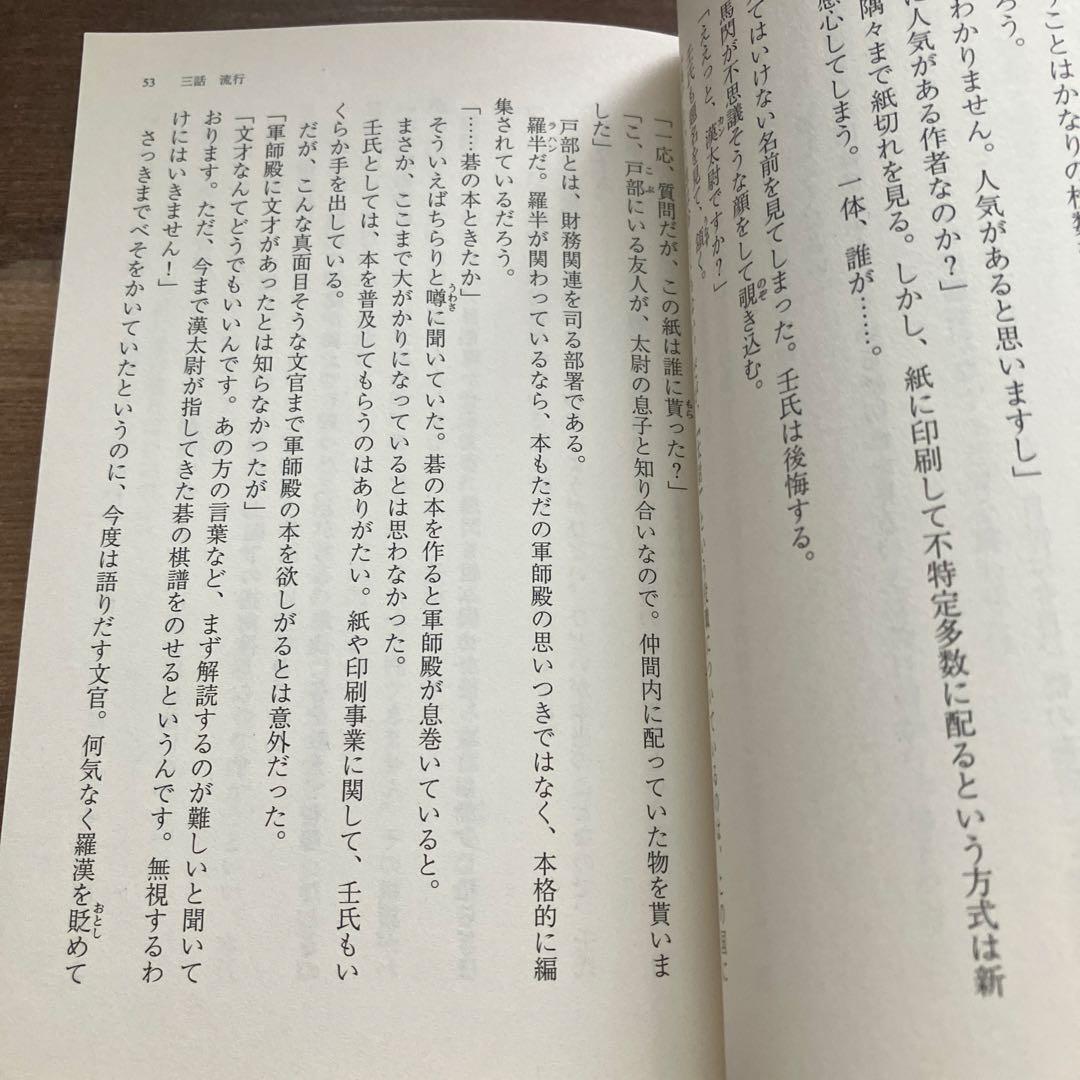 ことはかなりの枚
ろう。
わかりません。人気があると思いますし」
人気がある作者なのか？」
隅々まで紙切れを見る。しかし、紙に印刷して不特定多数に配るという方式は新
感心してしまう。一体、誰が……。
てはいけない名前を見てしまった。壬氏は後悔する。
馬閃が不思議そうな顔をして覗き込む。
「ええっと、漢太尉ですか？」
壬氏も題名を見て、頷く。
53 三話 流行
「一応、質問だが、この紙は誰に貰った？」
「こ、戸部にいる友人が、太尉の息子と知り合いなので。仲間内に配っていた物を貰いま
した」
戸部とは、財務関連を司る部署である。
羅半だ。羅半が関わっているなら、本もただの軍師殿の思いつきではなく、本格的に編
集されているだろう。
「……碁の本ときたか」
そういえばちらりと噂に聞いていた。碁の本を作ると軍師殿が息巻いていると。
まさか、ここまで大がかりになっているとは思わなかった。
壬氏としては、本を普及してもらうのはありがたい。紙や印刷事業に関して、壬氏もい
くらか手を出している。
だが、こんな真面目そうな文官まで軍師殿の本を欲しがるとは意外だった。
「軍師殿に文才があったとは知らなかったが」
「文才なんてどうでもいいんです。あの方の言葉など、まず解読するのが難しいと聞いて
おります。ただ、今まで漢太尉が指してきた碁の棋譜をのせるというんです。無視するわ
けにはいきません！」
さっきまでべそをかいていたというのに、今度は語りだす文官。何気なく羅漢を貶めて